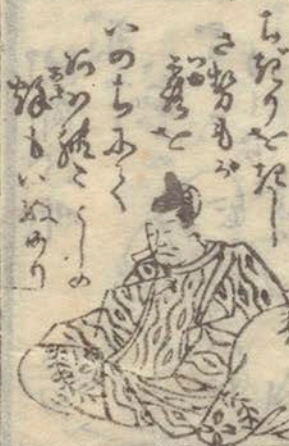 ちぎりをきし
させもが
露を
いのちにて
あはれことしの
秋もいぬめり